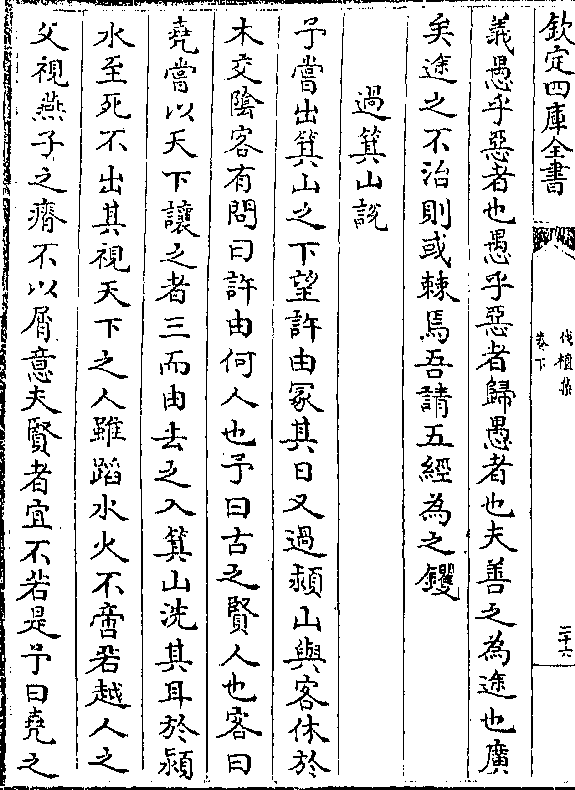 欽定四庫全書
伐檀集
卷下
二十六
義愚乎惡者也愚乎惡者歸愚者也夫善之為途也廣
矣途之不治則或棘焉吾請五經為之钁
過箕山說
予嘗出箕山之下望許由冢其日又過潁山與客休於
木交陰客有問曰許由何人也予曰古之賢人也客曰
堯嘗以天下讓之者三而由去之入箕山洗其耳於潁
水至死不出其視天下之人雖蹈水火不啻若越人之
父視燕子之瘠不以屑意夫賢者宜不若是予曰堯之